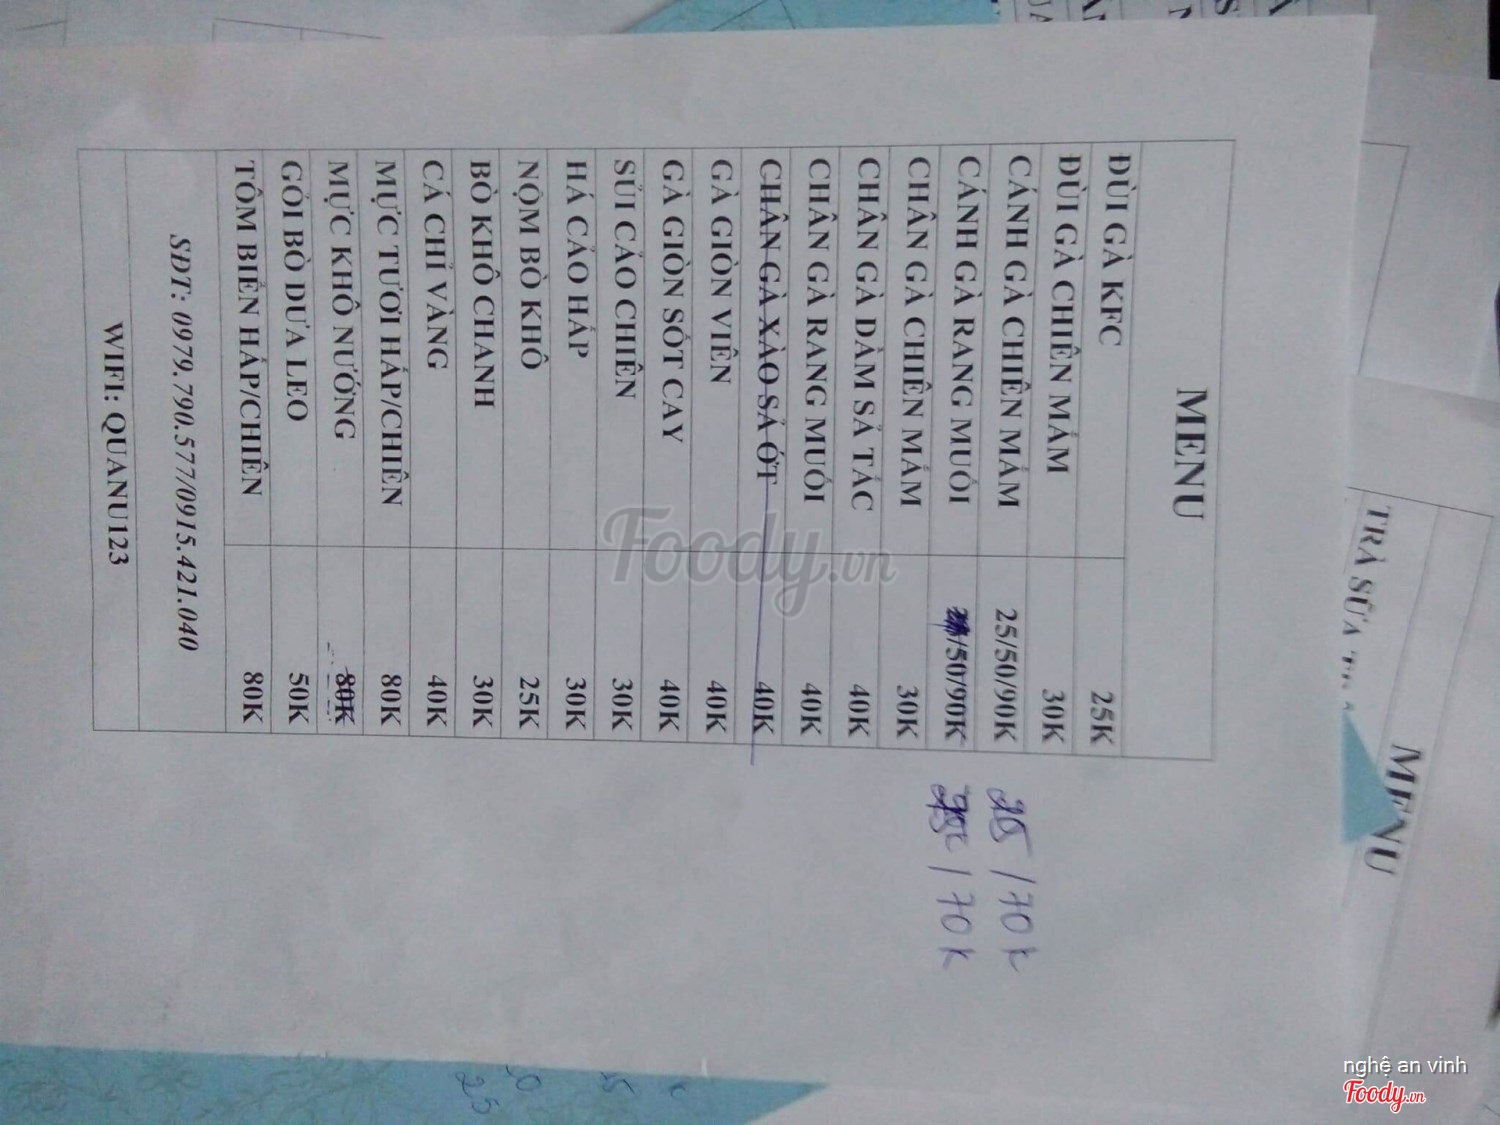 MENU
ĐÙI GÀ KFC 25K
ĐÙI GÀ CHIÊN MẮM 30K
CÁNH GÀ CHIÊN MẮM 25/50/90K /70K
CÁNH GÀ RANG MUỐI /50/90K /70K
CHÂN GÀ CHIÊN MẮM 30K
CHÂN GÀ DẦM SẢ TẮC 40K
CHÂN GÀ RANG MUỐI 40K
CHÂN GÀ XÀO SẢ ỚT 40K
GÀ GIÒN VIÊN 40K
GÀ GIÒN SỐT CAY 40K
SỦI CẢO CHIÊN 30K
HÁ CẢO HẤP 30K
NỘM BÒ KHÔ 25K
BÒ KHÔ CHANH 30K
CÁ CHỈ VÀNG 40K
MỰC TƯƠI HẤP/CHIÊN 80K
MỰC KHÔ NƯỚNG 80K
GỎI BÒ DƯA LEO 50K
TÔM BIỂN HẤP/CHIÊN 80K
SĐT: 0979.790.577/0915.421.040
WIFI: QUANU123
MENU
TRÀ SỮA
Foody.vn
nghệ an vinh
Foody.vn